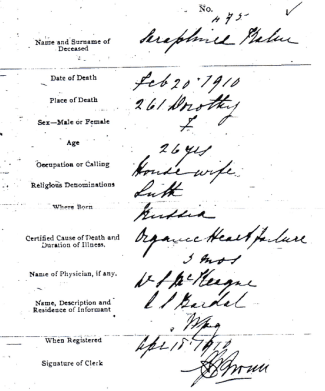 No.
475
Name and Surname of
Deceased
Date of Death Feb 20·1910
Place of Death 261 Dorothy
Sex—Male or Female F
Age 26 yrs
Occupation or Calling House wife
Religious Denominations Luth
Where Born Russia
Certified Cause of Death and
Duration of Illness. Organic Heart failure
3 mos
Name of Physician, if any.
Name, Description and
Residence of Informant
Wpg
When Registered Apl 15·1910
Signature of Clerk